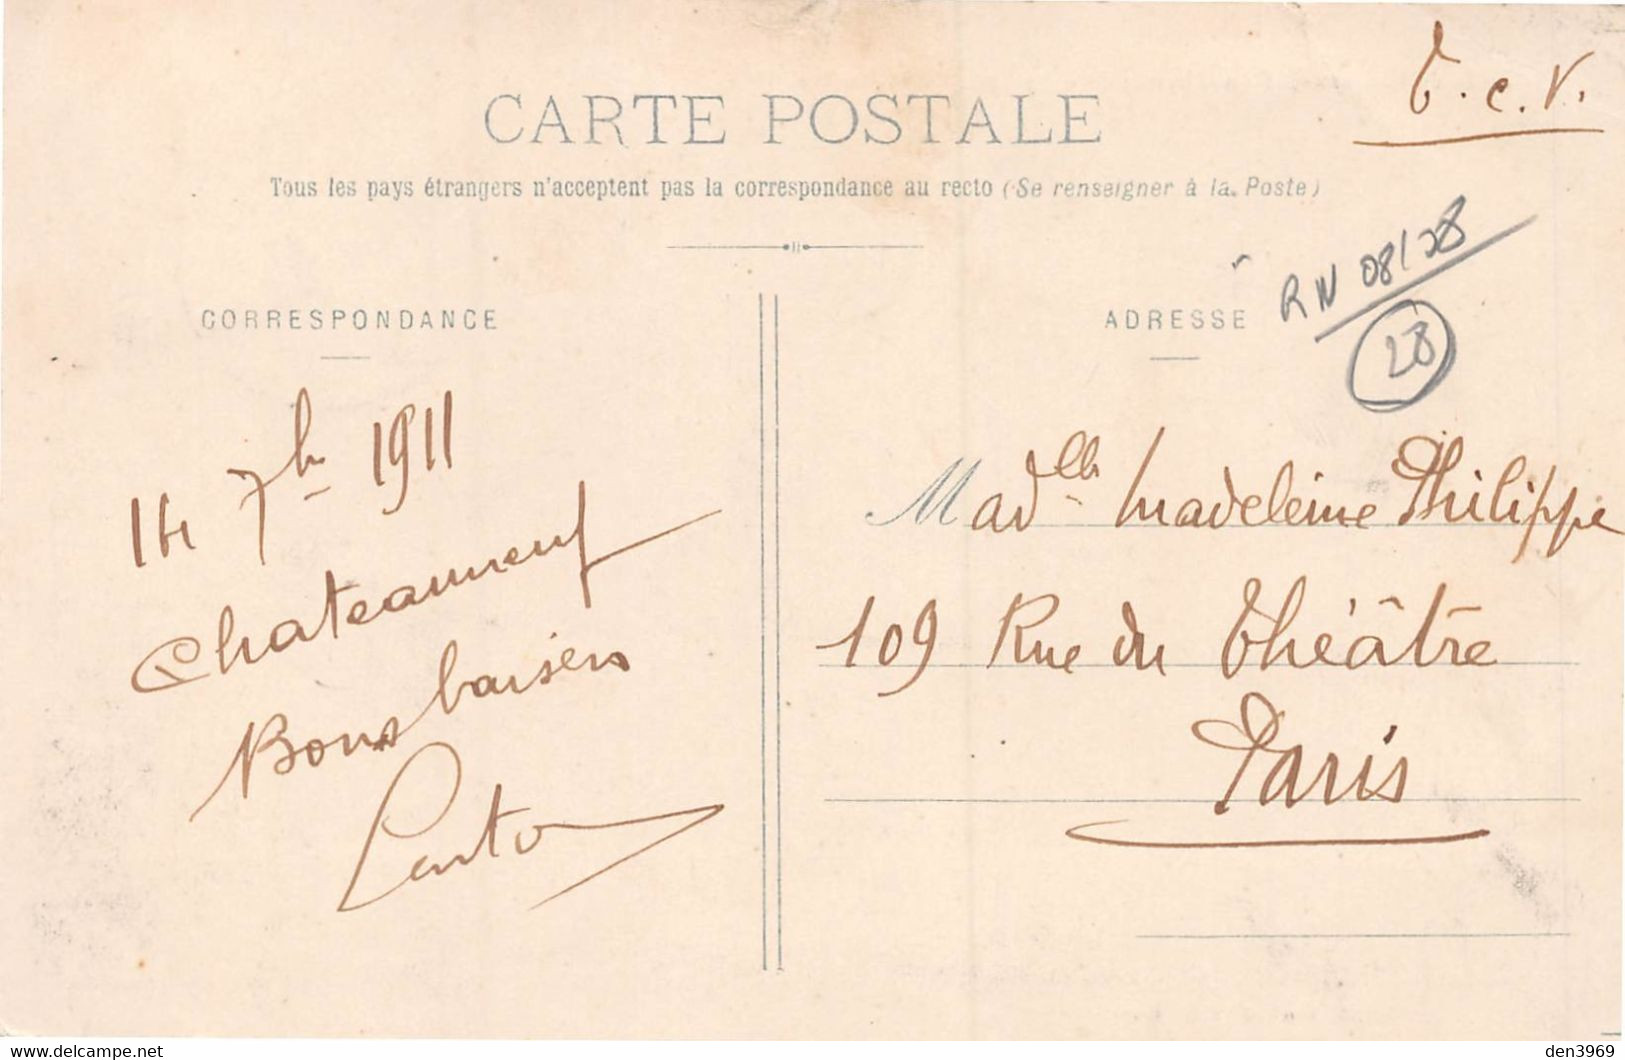 T.C.V.
CARTE POSTALE
Tous les pays étrangers n'acceptent pas la correspondance au recto (Se renseigner à la Poste)
RN 08/28
28
CORRESPONDANCE
14 7bre 1911
Chateauneuf
Bons baisers
ADRESSE
Madelle Madeleine Philippe
109 Rue du Théâtre
Paris
den3969